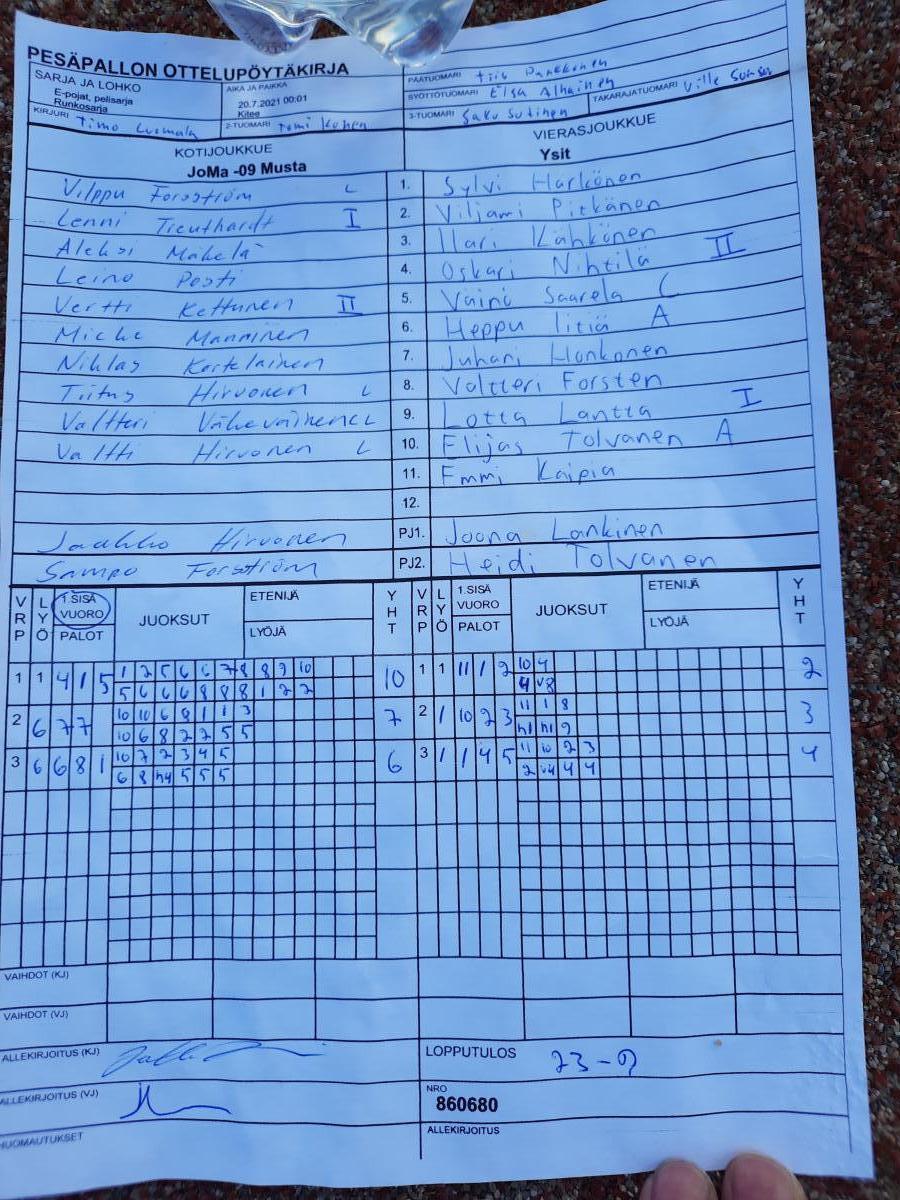 PESÄPALLON OTTELUPÖYTÄKIRJA
SARJA JA LOHKO
E-pojat, pelisarja
Runkosarja
AIKA JA PAIKKA
20.7.2021 00:01
Kitee
PÄÄTUOMARI
SYÖTTÖTUOMARI Elsa Alhainen
TAKARAJATUOMARI Ville
KIRJURI Timo Luomala
2-TUOMARI Tomi
3-TUOMARI Saku Sutinen
KOTIJOUKKUE
JoMa -09 Musta
VIERASJOUKKUE
Ysit
Vilppu Forsström L 1. Sylvi Harkönen
Lenni Treuthardt I 2. Viljami Pitkänen
Aleksi Mäkelä 3. Ilari Kähkönen
Leino Posti 4. Oskari Nihtilä II
Vertti Kettunen II 5. Väinö Saarela C
Micke Manninen 6. Heppu Itiä A
Niklas Kortelainen 7. Juhani Honkonen
Tiitus Hirvonen L 8. Valtteri Forsten
Valtteri 9. Lotta Lantta I
Valtti Hirvonen L 10. Elijas Tolvanen A
11. Emmi Kaipia
12.
Jaakko Hirvonen PJ1. Joona Lankinen
Sampo Forsström PJ2. Heidi Tolvanen
VRP LYÖ 1.SISÄ VUORO PALOT JUOKSUT ETENIJÄ LYÖJÄ YHT VRP LYÖ 1.SISÄ VUORO PALOT JUOKSUT ETENIJÄ LYÖJÄ YHT
1 1 4 1 5 1 2 5 6 6 7 8 8 9 10 10 1 1 11 1 2 10 4 2
5 6 6 6 8 8 8 1 2 2 4 v8
2 6 7 7 10 10 6 8 1 1 3 7 2 1 10 2 3 11 1 8 3
10 6 8 2 2 5 5 h1 h1 9
3 6 6 8 1 10 7 2 3 4 5 6 3 1 1 4 5 11 10 2 3 4
6 8 h4 5 5 5 2 v4 4 4
VAIHDOT (KJ)
VAIHDOT (VJ)
ALLEKIRJOITUS (KJ)
LOPPUTULOS 23-9
ALLEKIRJOITUS (VJ)
NRO
860680
HUOMAUTUKSET
ALLEKIRJOITUS